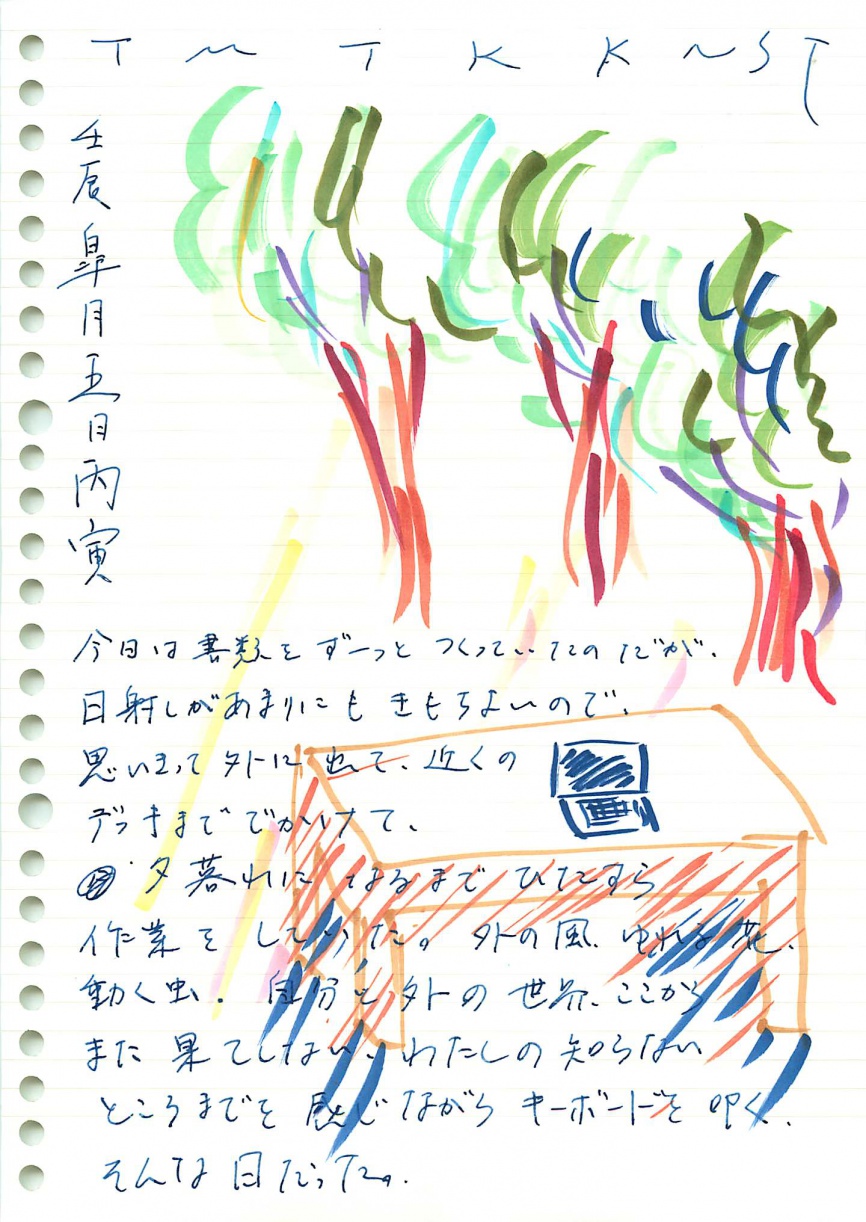 T M T K K N S T
壬辰 皐月五日 丙寅
今日は書類をずーっとつくっていたのだが、
日射しがあまりにもきもちよいので、
思いきって外に出て、近くの
デッキまででかけて、
夕暮れになるまでひたすら
作業をしていた。外の風、ゆれる花、
動く虫。自分と外の世界、ここから
また果てしない、わたしの知らない
ところまでを感じながらキーボードを叩く、
そんな日だった。